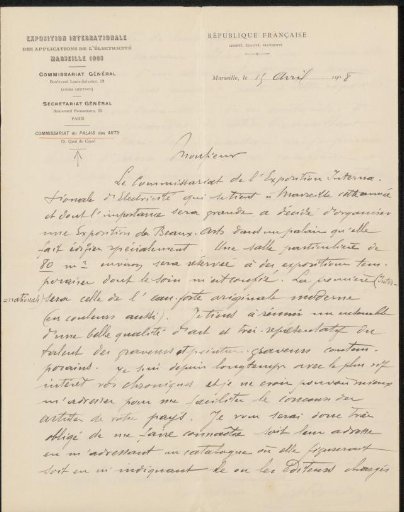 EXPOSITION INTERNATIONALE
DES APPLICATIONS DE L'ÉLECTRICITÉ
MARSEILLE 1908
COMMISSARIAT GÉNÉRAL
SECRÉTARIAT GÉNÉRAL
PARIS
COMMISSARIAT du PALAIS des ARTS
RÉPUBLIQUE FRANÇAISE
LIBERTÉ, ÉGALITÉ, FRATERNITÉ
Marseille, le 15 Avril 1908
Monsieur
Le Commissariat de l'Exposition Interna
tionale d'Electricité qui se tient à Marseille cette année
et dont l'importance sera grande a décidé d'organiser
une Exposition de Beaux-Arts dans un palais qu'elle
fait édifier spécialement. Une salle particulière de
80 m² environ sera réservée à des expositions tem
poraires dont le soin m'est confié. La première (inter
nationale) sera celle de l'eau-forte originale moderne
(en couleurs aussi). Je tiens à réunir un ensemble
d'une belle qualité d'art et très représentatif du
talent des graveurs et peintres-graveurs contem
porains. Je suis depuis longtemps avec le plus vif
intérêt vos chroniques et je ne crois pouvoir mieux
m'adresser pour me faciliter le concours des
artistes de votre pays. Je vous serai donc très
obligé de me faire connaître soit leur adresse
en m'adressant un catalogue où elle figureront
soit en m'indiquant le ou les Editeurs chargés